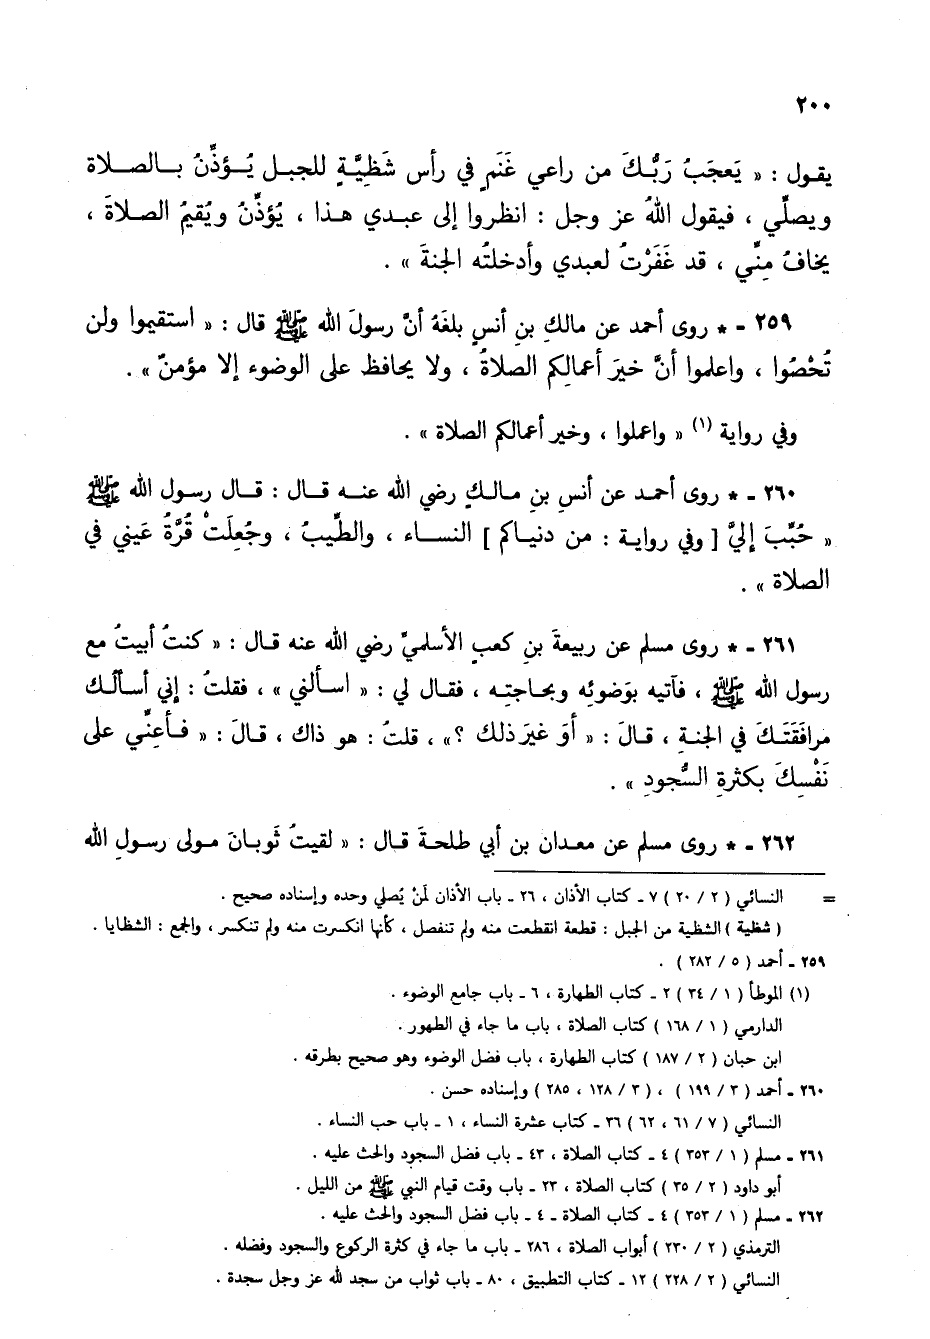 ٢٠٠
يقول : « يَعجَبُ رَبُّكَ من راعي غَنَمٍ في رأس شَظِيَّةٍ للجبل يُؤذِّنُ بالصلاة
ويصلِّي ، فيقول اللهُ عز وجل : انظروا إلى عبدي هذا ، يُؤذِّنُ ويُقيمُ الصلاةَ ،
يخافُ مِنِّي ، قد غَفَرْتُ لعبدي وأدخلتُه الجنةَ » .
٢٥٩ ـ * روى أحمد عن مالكِ بنِ أنسٍ بلغَهُ أنَّ رسولَ الله ﷺ قال : « استقيموا ولن
تُحْصُوا ، واعلموا أنَّ خيرَ أعمالِكم الصلاةُ ، ولا يحافظ على الوضوء إلا مؤمنٌ » .
وفي رواية (١) « واعملوا ، وخير أعمالكم الصلاة » .
٢٦٠ ـ * روى أحمد عن أنسِ بنِ مالكٍ رضي الله عنه قال : قال رسول الله ﷺ
« حُبِّبَ إليَّ [ وفي رواية : من دنياكم ] النساء ، والطِّيبُ ، وجُعِلَتْ قُرَّةُ عَيني في
الصلاة » .
٢٦١ ـ * روى مسلم عن ربيعةَ بنِ كعبٍ الأسلميِّ رضي الله عنه قال : « كنتُ أبيتُ مع
رسول الله ﷺ ، فآتيه بوَضوئِه وبحاجتِه ، فقال لي : « اسألني » ، فقلتُ : إني أسألُكَ
مرافَقَتَكَ في الجنةِ ، قالَ : « أوَ غيرَ ذلك ؟» ، قلتُ : هو ذاك ، قالَ : « فأعِنِّي على
نَفْسِكَ بكثرةِ السُّجودِ » .
٢٦٢ ـ * روى مسلم عن معدان بن أبي طلحةَ قال : « لقيتُ ثَوبانَ مولى رسولِ الله
= النسائي ( ٢ / ٢٠ ) ٧ ـ كتاب الأذان ، ٢٦ ـ باب الأذان لمَنْ يُصلي وحده وإسناده صحيح .
( شظية ) الشظية من الجبل : قطعة انقطعت منه ولم تنفصل ، كأنها انكسرت منه ولم تنكسر ، والجمع : الشظايا .
٢٥٩ ـ أحمد ( ٥ / ٢٨٢ ) .
(١) الموطأ ( ١ / ٣٤ ) ٢ ـ كتاب الطهارة ، ٦ ـ باب جامع الوضوء .
الدارمي ( ١ / ١٦٨ ) كتاب الصلاة ، باب ما جاء في الطهور .
ابن حبان ( ٢ / ١٨٧ ) كتاب الطهارة ، باب فضل الوضوء وهو صحيح بطرقه .
٢٦٠ ـ أحمد ( ٣ / ١٩٩ ) ، ( ٣ / ١٢٨ ، ٢٨٥ ) وإسناده حسن .
النسائي ( ٧ / ٦١ ، ٦٢ ) ٣٦ ـ كتاب عشرة النساء ، ١ ـ باب حب النساء .
٢٦١ ـ مسلم ( ١ / ٣٥٣ ) ٤ ـ كتاب الصلاة ، ٤٣ ـ باب فضل السجود والحث عليه .
أبو داود ( ٢ / ٣٥ ) كتاب الصلاة ، ٢٣ ـ باب وقت قيام النبي ﷺ من الليل .
٢٦٢ ـ مسلم ( ١ / ٣٥٣ ) ٤ ـ كتاب الصلاة ـ ٤ ـ باب فضل السجود والحث عليه .
الترمذي ( ٢ / ٢٣٠ ) أبواب الصلاة ، ٢٨٦ ـ باب ما جاء في كثرة الركوع والسجود وفضله .
النسائي ( ٢ / ٢٢٨ ) ١٢ ـ كتاب التطبيق ، ٨٠ ـ باب ثواب من سجد لله عز وجل سجدة .